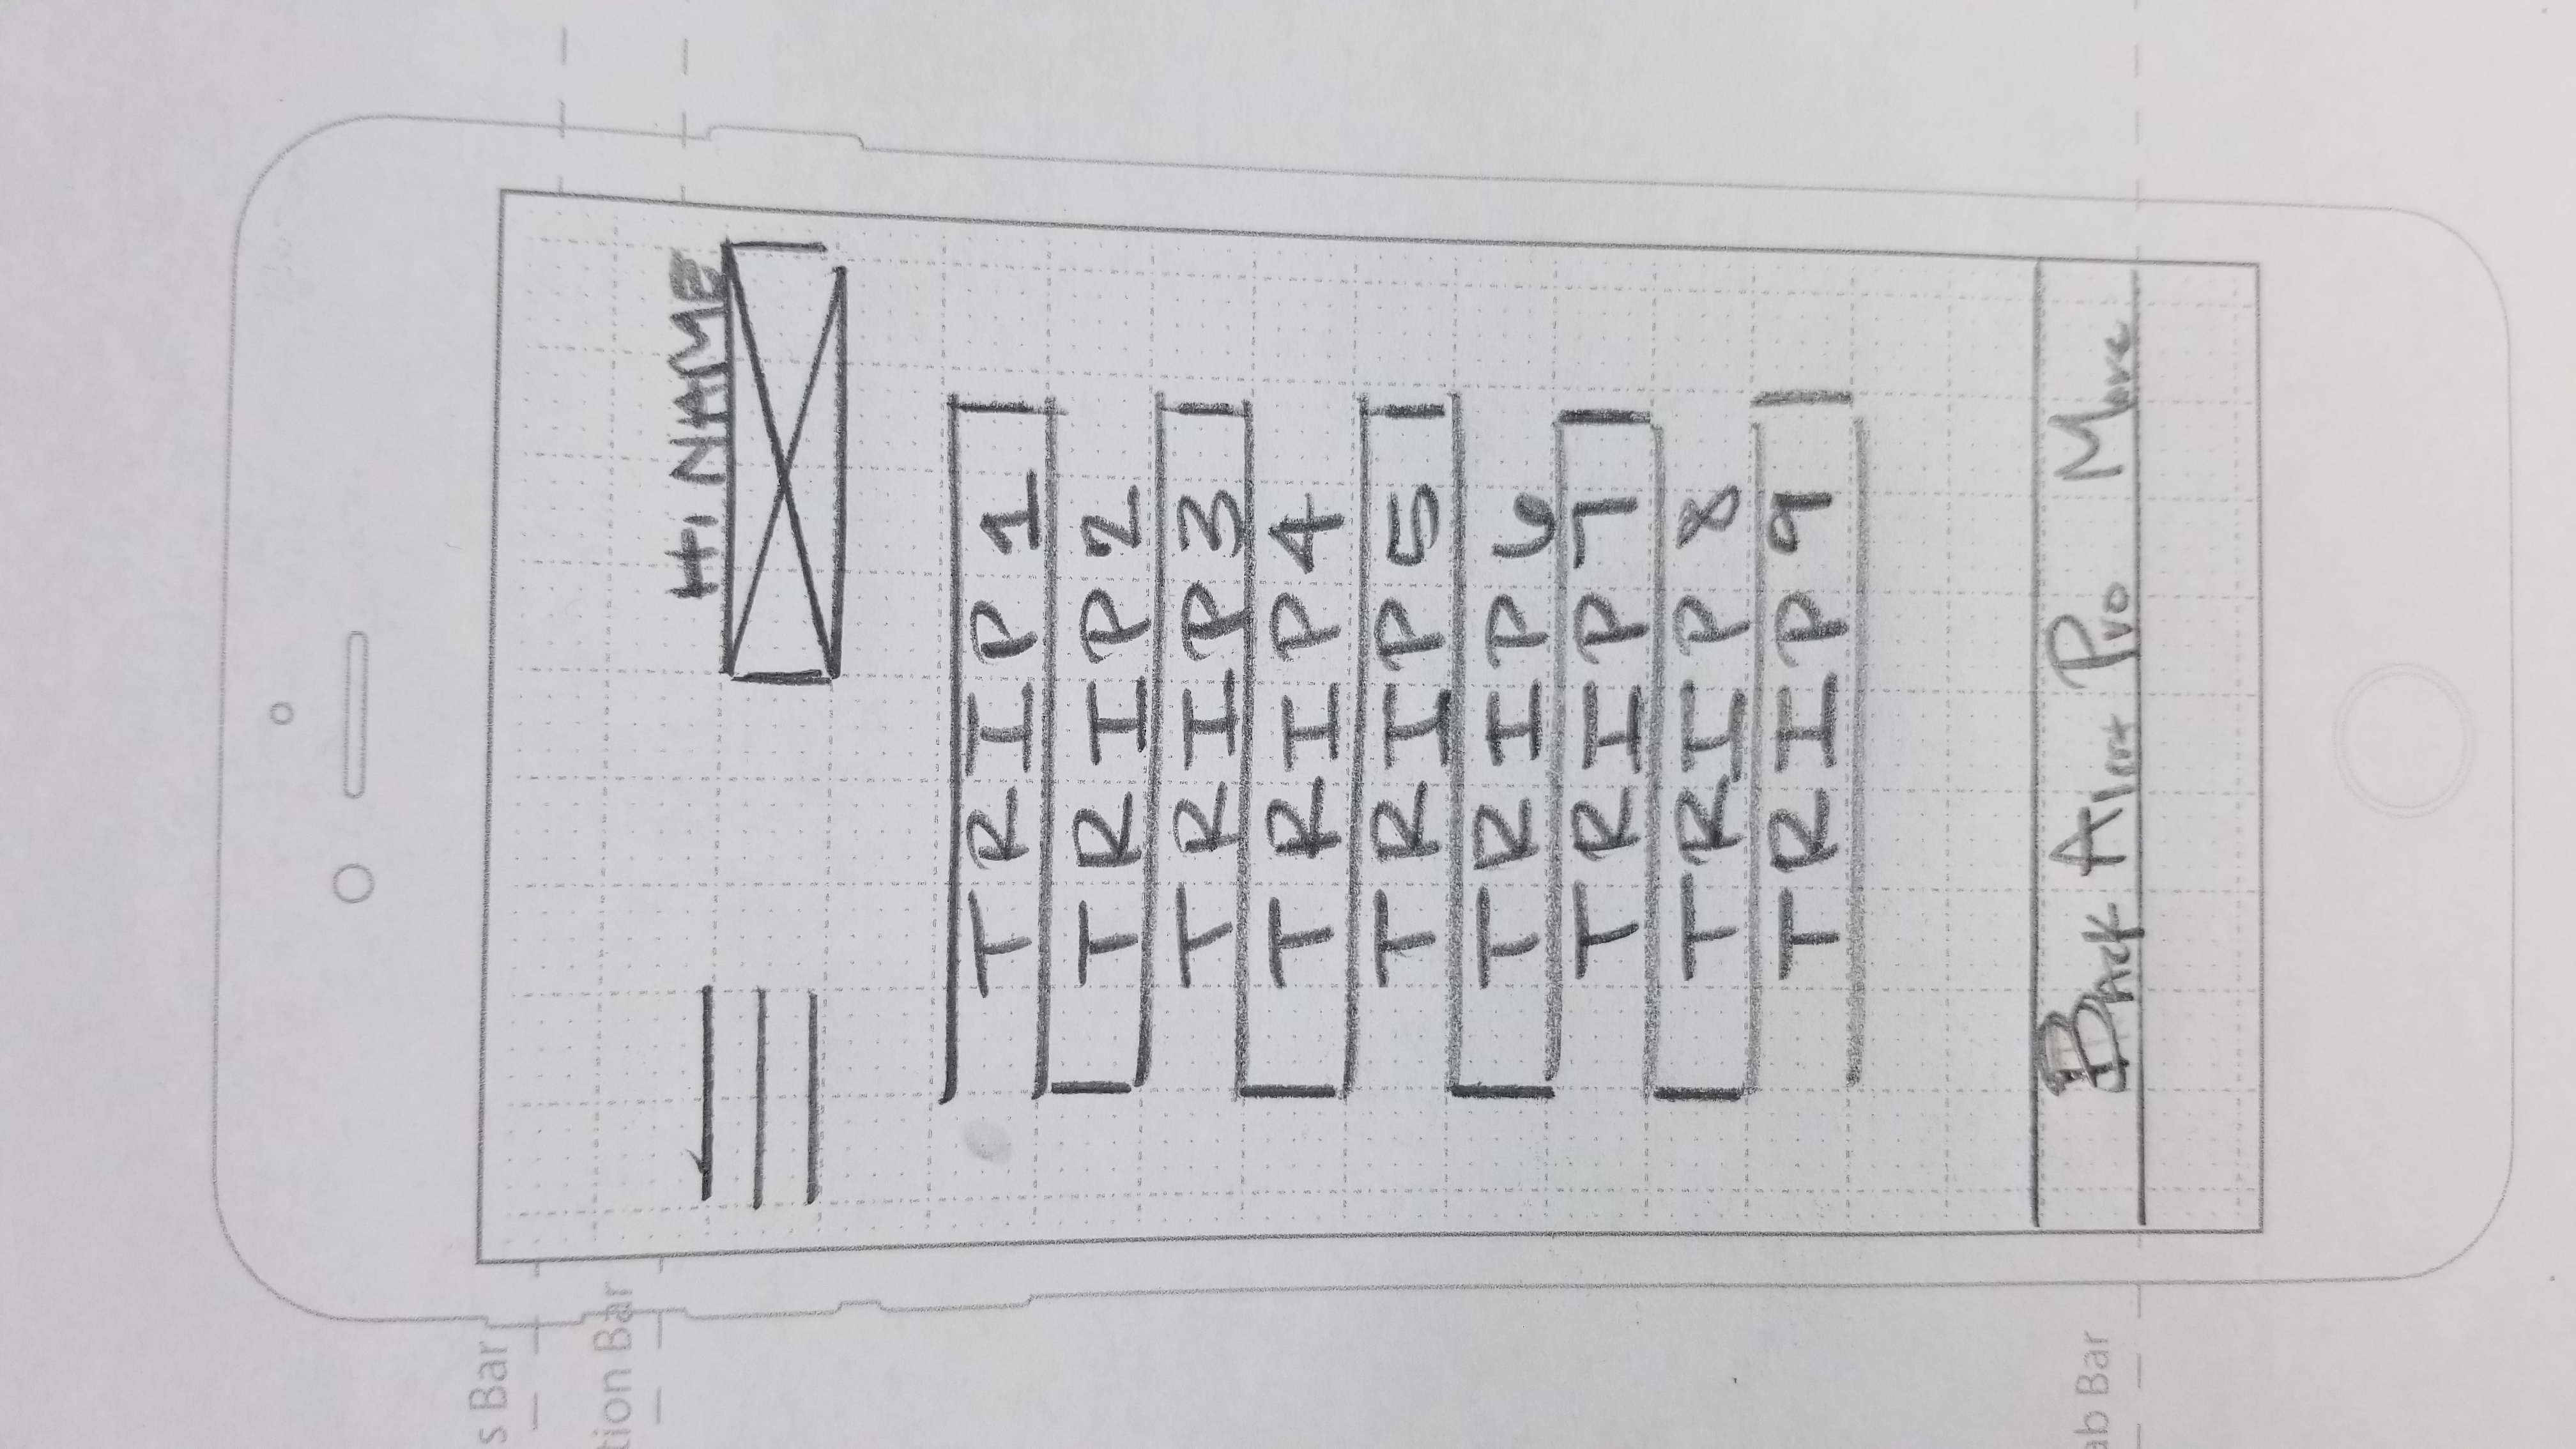 s Bar
tion Bar
Hi NAME
TRIP 1
TRIP 2
TRIP 3
TRIP 4
TRIP 5
TRIP 6
TRIP 7
TRIP 8
TRIP 9
ab Bar
Back Alert Pro More